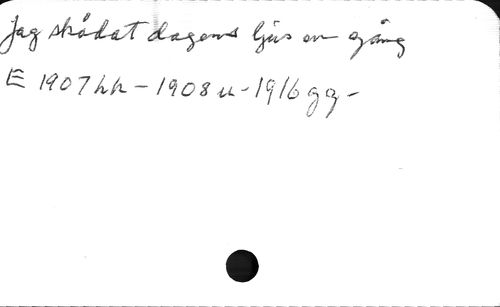 Jag skådat dagens ljus en gång
E 1907 hh - 1908 u - 1916 gg -